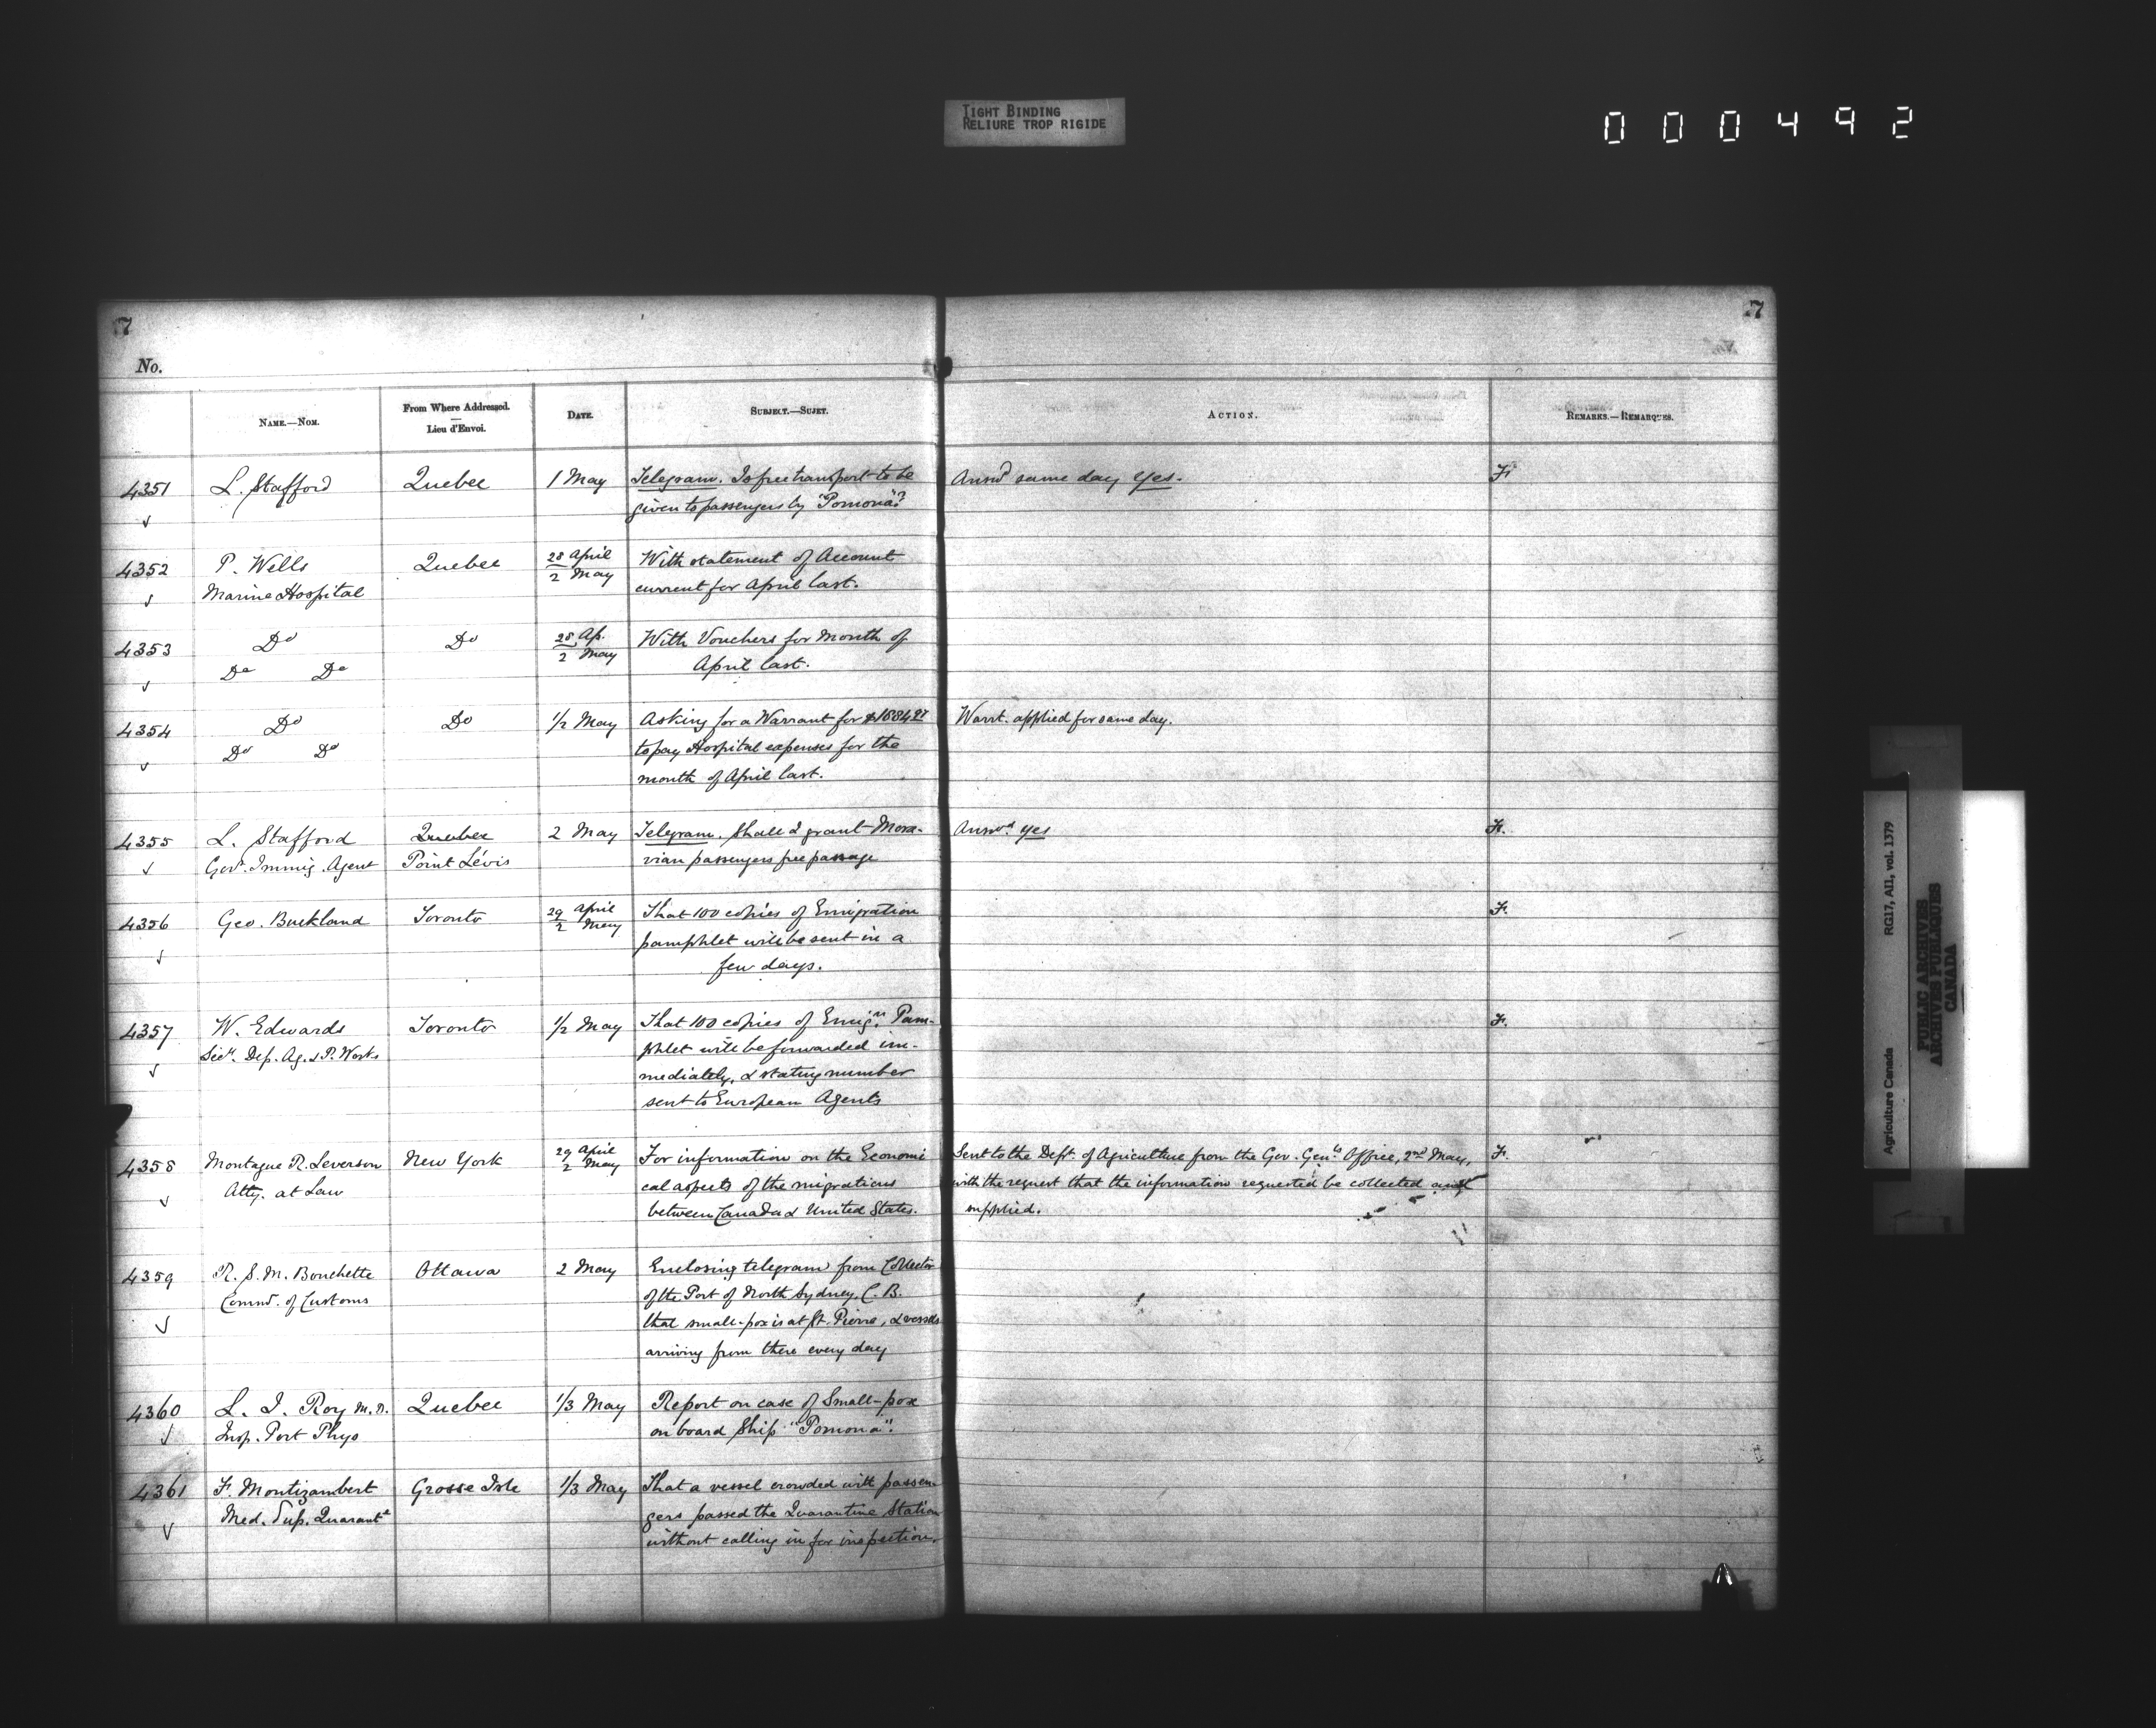 TIGHT BINDING
RELIURE TROP RIGIDE
000492
7
7
No.
NAME.—NOM.
From Where Addressed.
Lieu d'Envoi.
DATE.
SUBJECT.—SUJET.
ACTION.
REMARKS.—REMARQUES.
4351 L. Stafford Quebec 1 May Telegram. Is free transport to be Answd same day Yes. F.
given to passengers by "Pomona"?
4352 P. Wells Quebec 28 April With statement of Account
Marine Hospital 2 May current for April last.
4353 Do Do 28 Ap. With Vouchers for Month of
Do Do 2 May April last.
4354 Do Do 1/2 May Asking for a Warrant for Warrt. applied for same day.
Do Do to pay Hospital expenses for the
month of April last.
4355 L. Stafford Quebec 2 May Telegram. Shall I grant Mora- Answd. yes F.
Govt. Immig. Agent Point Lévis vian passengers free passage
4356 Geo. Buckland Toronto 29 April That 100 copies of Emigration F.
2 May pamphlet will be sent in a
few days.
4357 W. Edwards Toronto 1/2 May That 100 copies of Emign. Pam- F.
Secy. Dep. Ag. & P. Works phlet will be forwarded im-
mediately, & stating number
sent to European Agents
4358 Montague R. Leverson New York 29 April For information on the Economi Sent to the Dept. of Agriculture from the Gov. Genls Office, 2nd May, F.
Atty. at Law 2 May cal aspects of the migrations with the request that the information requested be collected and
between Canada & United States. supplied.
4359 R. S. M. Bouchette Ottawa 2 May Enclosing telegram from Collector
Commr. of Customs of the Port of North Sydney, C. B.
that small-pox is at St. Pierre, & vessels
arriving from there every day
4360 L. J. Roy M.D. Quebec 1/3 May Report on case of Small-pox
Insp. Port Phys on board Ship "Pomona".
4361 F. Montizambert Grosse Isle 1/3 May That a vessel crowded with passen-
Med. Sup. Quarante gers passed the Quarantine Station
without calling in for inspection.
Agriculture Canada RG17, AII, vol. 1379
PUBLIC ARCHIVES
ARCHIVES PUBLIQUES
CANADA